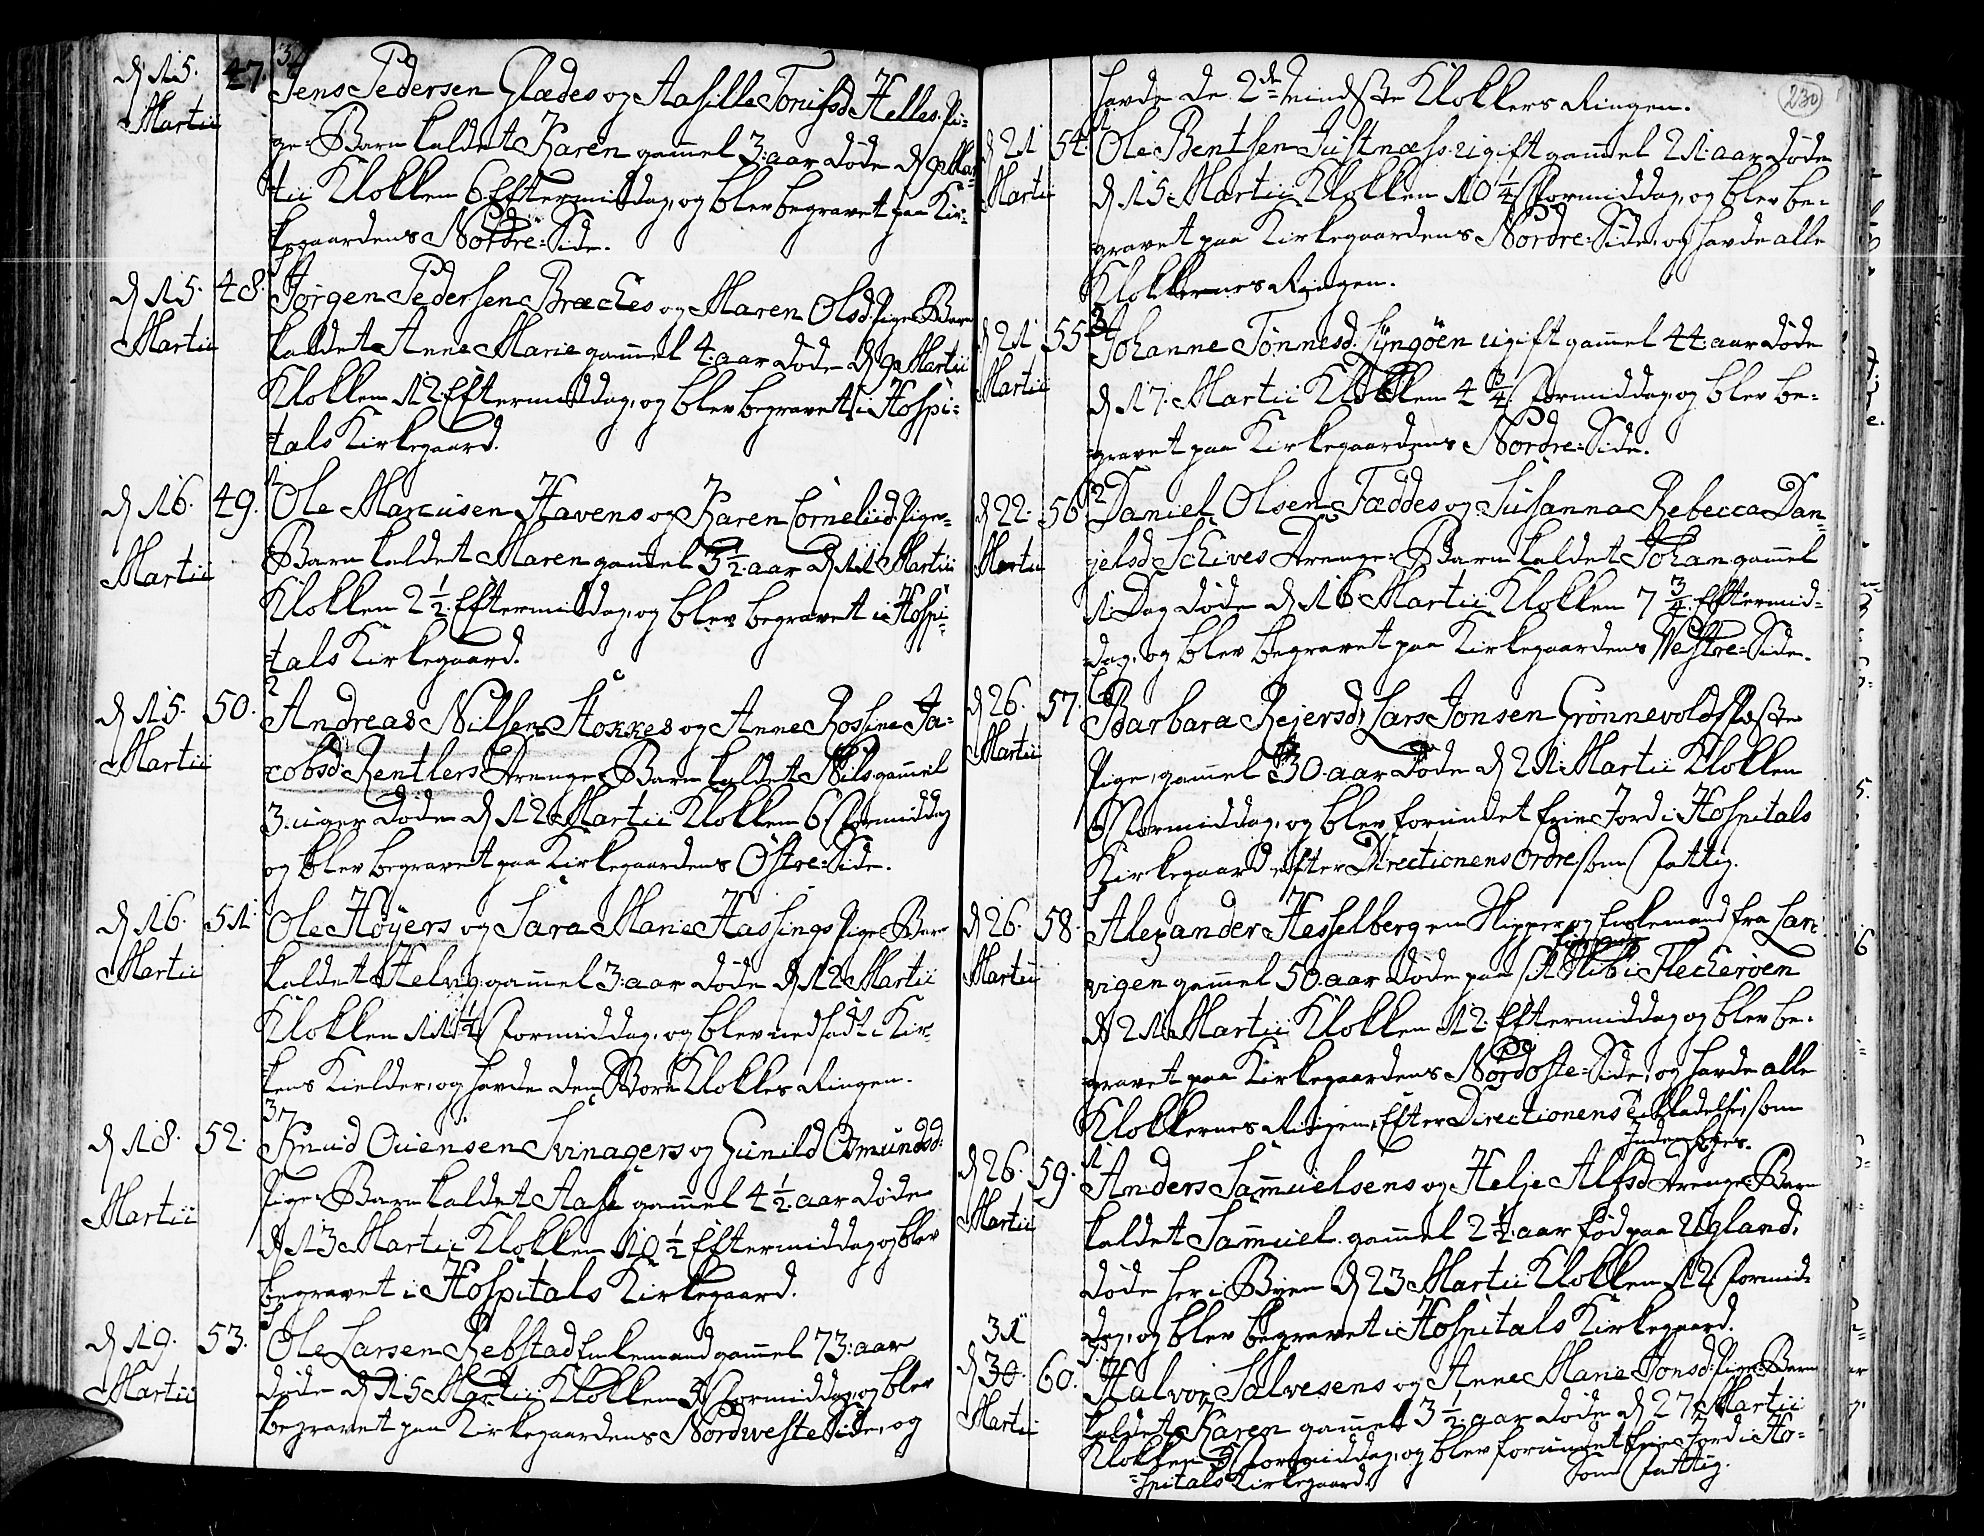 d. 15. 47. Jens Pedersen Glædes og Aasille Tonisd. Helles Pi-
Martii ge-Barn kaldet Karen gammel 3: aar døde d. 9 Mar-
tii Klokken 6 Eftermiddag, og blev begravet paa Kir-
kegaardens Nordre-Side.
d. 15. 48. Jørgen Pedersen Bræckes og Maren Olsd. Pige-Barn
Martii kaldet Anne Marie gammel 4: aar døde d. 9 Martii
Klokken 12 Eftermiddag, og blev begravet i Hospi-
tals Kirkegaard.
d. 16. 49. Ole Marcusen Havens og Karen Corneliid. Pige-
Martii Barn kaldet Maren gammel 3 1/2 aar d. 11 Martii
Klokken 2 1/2 Eftermiddag, og blev begravet i Hospi-
tals Kirkegaard.
d. 15. 50. Andreas Nilsen Stokkes og Anne Rossine Ja-
Martii cobsd: Rentlers Drenge-Barn kaldet Nils gammel
3. uger døde d. 12 Martii Klokken 6 Formiddag
og blev begravet paa Kirkegaardens Østre-Side.
d. 16. 51 Ole Høyers og Sara Marie Hassings Pige-Barn
Martii kaldet Helvig gammel 3: aar døde d. 12 Martii
Klokken 11 1/2 Formiddag, og blev nedsadt i Kir-
kens Kielder, og havde den Store Klokkes Ringen.
37
d. 18. 52. Knud Ouensen Kvinagers og Gunild Osmundsd:
Martii Pige-Barn kaldet Aase gammel 4 1/2 aar døde
d. 13 Martii Klokken 10 1/2 Eftermiddag og blev
begravet i Hospitals Kirkegaard.
d. 19. 53. Ole Larsen Rebstad Enkemand gammel 73: aar
Martii døde d. 15 Martii Klokken Formiddag, og blev
begravet paa Kirkegaardens Nordveste Side, og
230
havde de 2de Mindste Klokkers Ringen.
d. 21 54. Ole Bentsen Justnæss ugift gammel 21: aar døde
Martii d. 15 Martii Klokken 10 1/4 Formiddag, og blev be-
gravet paa Kirkegaardens Nordre-Side, og havde alle
Klokkernes Ringen.
d. 21 55 Johanne Tønnesd. Lyngøen ugift gammel 44: aar døde
Martii d. 17. Martii Klokken 4 3/4 Formiddag, og blev be-
gravet paa Kirkegaardens Nordre-Side.
d. 22. 56 Daniel Olsen Fæddes og Susanna Rebecca Dan-
Martii jelsd. Schives Drenge-Barn kaldet Johan gammel
1 Dag døde d. 16 Martii Klokken 7 3/4 Eftermid-
dag, og blev begravet paa Kirkegaardens Vestre-Side.
d. 26. 57. Barbara Rejersd: Lars Jonsen Grønnevolds Fæste
Martii Pige, gammel 30. aar døde d. 21 Martii Klokken
6 Formiddag, og blev forundet frie Jord i Hospitals
Kirkegaard efter Directionens Ordre som Fattig.
d. 26. 58. Alexander Hesselberg en Skipper og Enkemand fra Lar-
Martii vigen gammel 50. aar døde paa sit Skib i Fleckerøen
d. 21 Martii Klokken 12 Eftermiddag og blev be-
gravet paa Kirkegaardens Nordoste-Side, og havde alle
Klokkernes Ringen, Efter Directionens Tilladelse, som
Indenbyes.
d. 26. 59. Anders Sammuelsens og Helje Alfsd. Drenge-Barn
Martii kaldet Sammuel gammel 2 1/4 aar fød paa Ugland,
døde her i Byen d. 23 Martii Klokken 12 Formid-
dag, og blev begravet i Hospitals Kirkegaard.
31
d. 30. 60. Halvor Salvesens og Anne Marie Jonsd: Pige-Barn
Martii kaldet Karen gammel 3 1/2 aar døde d. 27 Martii
Klokken Formiddag, og blev forundet frie Jord i Ho-
spitals Kirkegaard som Fattig.